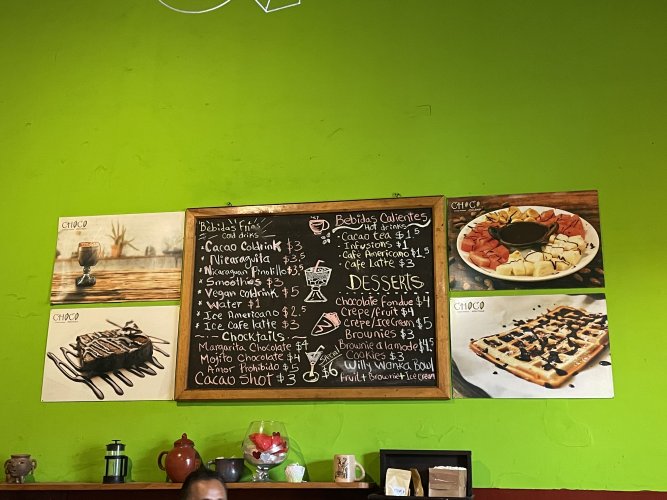 CHOCO
CHOCO
Bebidas Frias
Cold drinks
Cacao Coldrink $3
Nicaraguita $3.5
Nicaraguan Pinolillo $3.5
Smoothies $3
Vegan coldrink $5
Water $1
Ice Americano $2.5
Ice Cafe latte $3
Chocktails
Margarita Chocolate $4
Mojito Chocolate $4
Amor Prohibido $5
Cacao Shot $3
Bebidas Calientes
Hot drinks
Cacao tea $1.5
Infusions $1
Cafe Americano $1.5
Cafe Latte $3
DESSERTS
chocolate Fondue $4
Crepe/Fruit $4
Crepe/Ice Cream $5
Brownies $3
Brownie a la mode $4.5
Cookies $3
Special $6
Willy Wonka Bowl
Fruit + Brownie + Ice cream
CHOCO
CHOCO